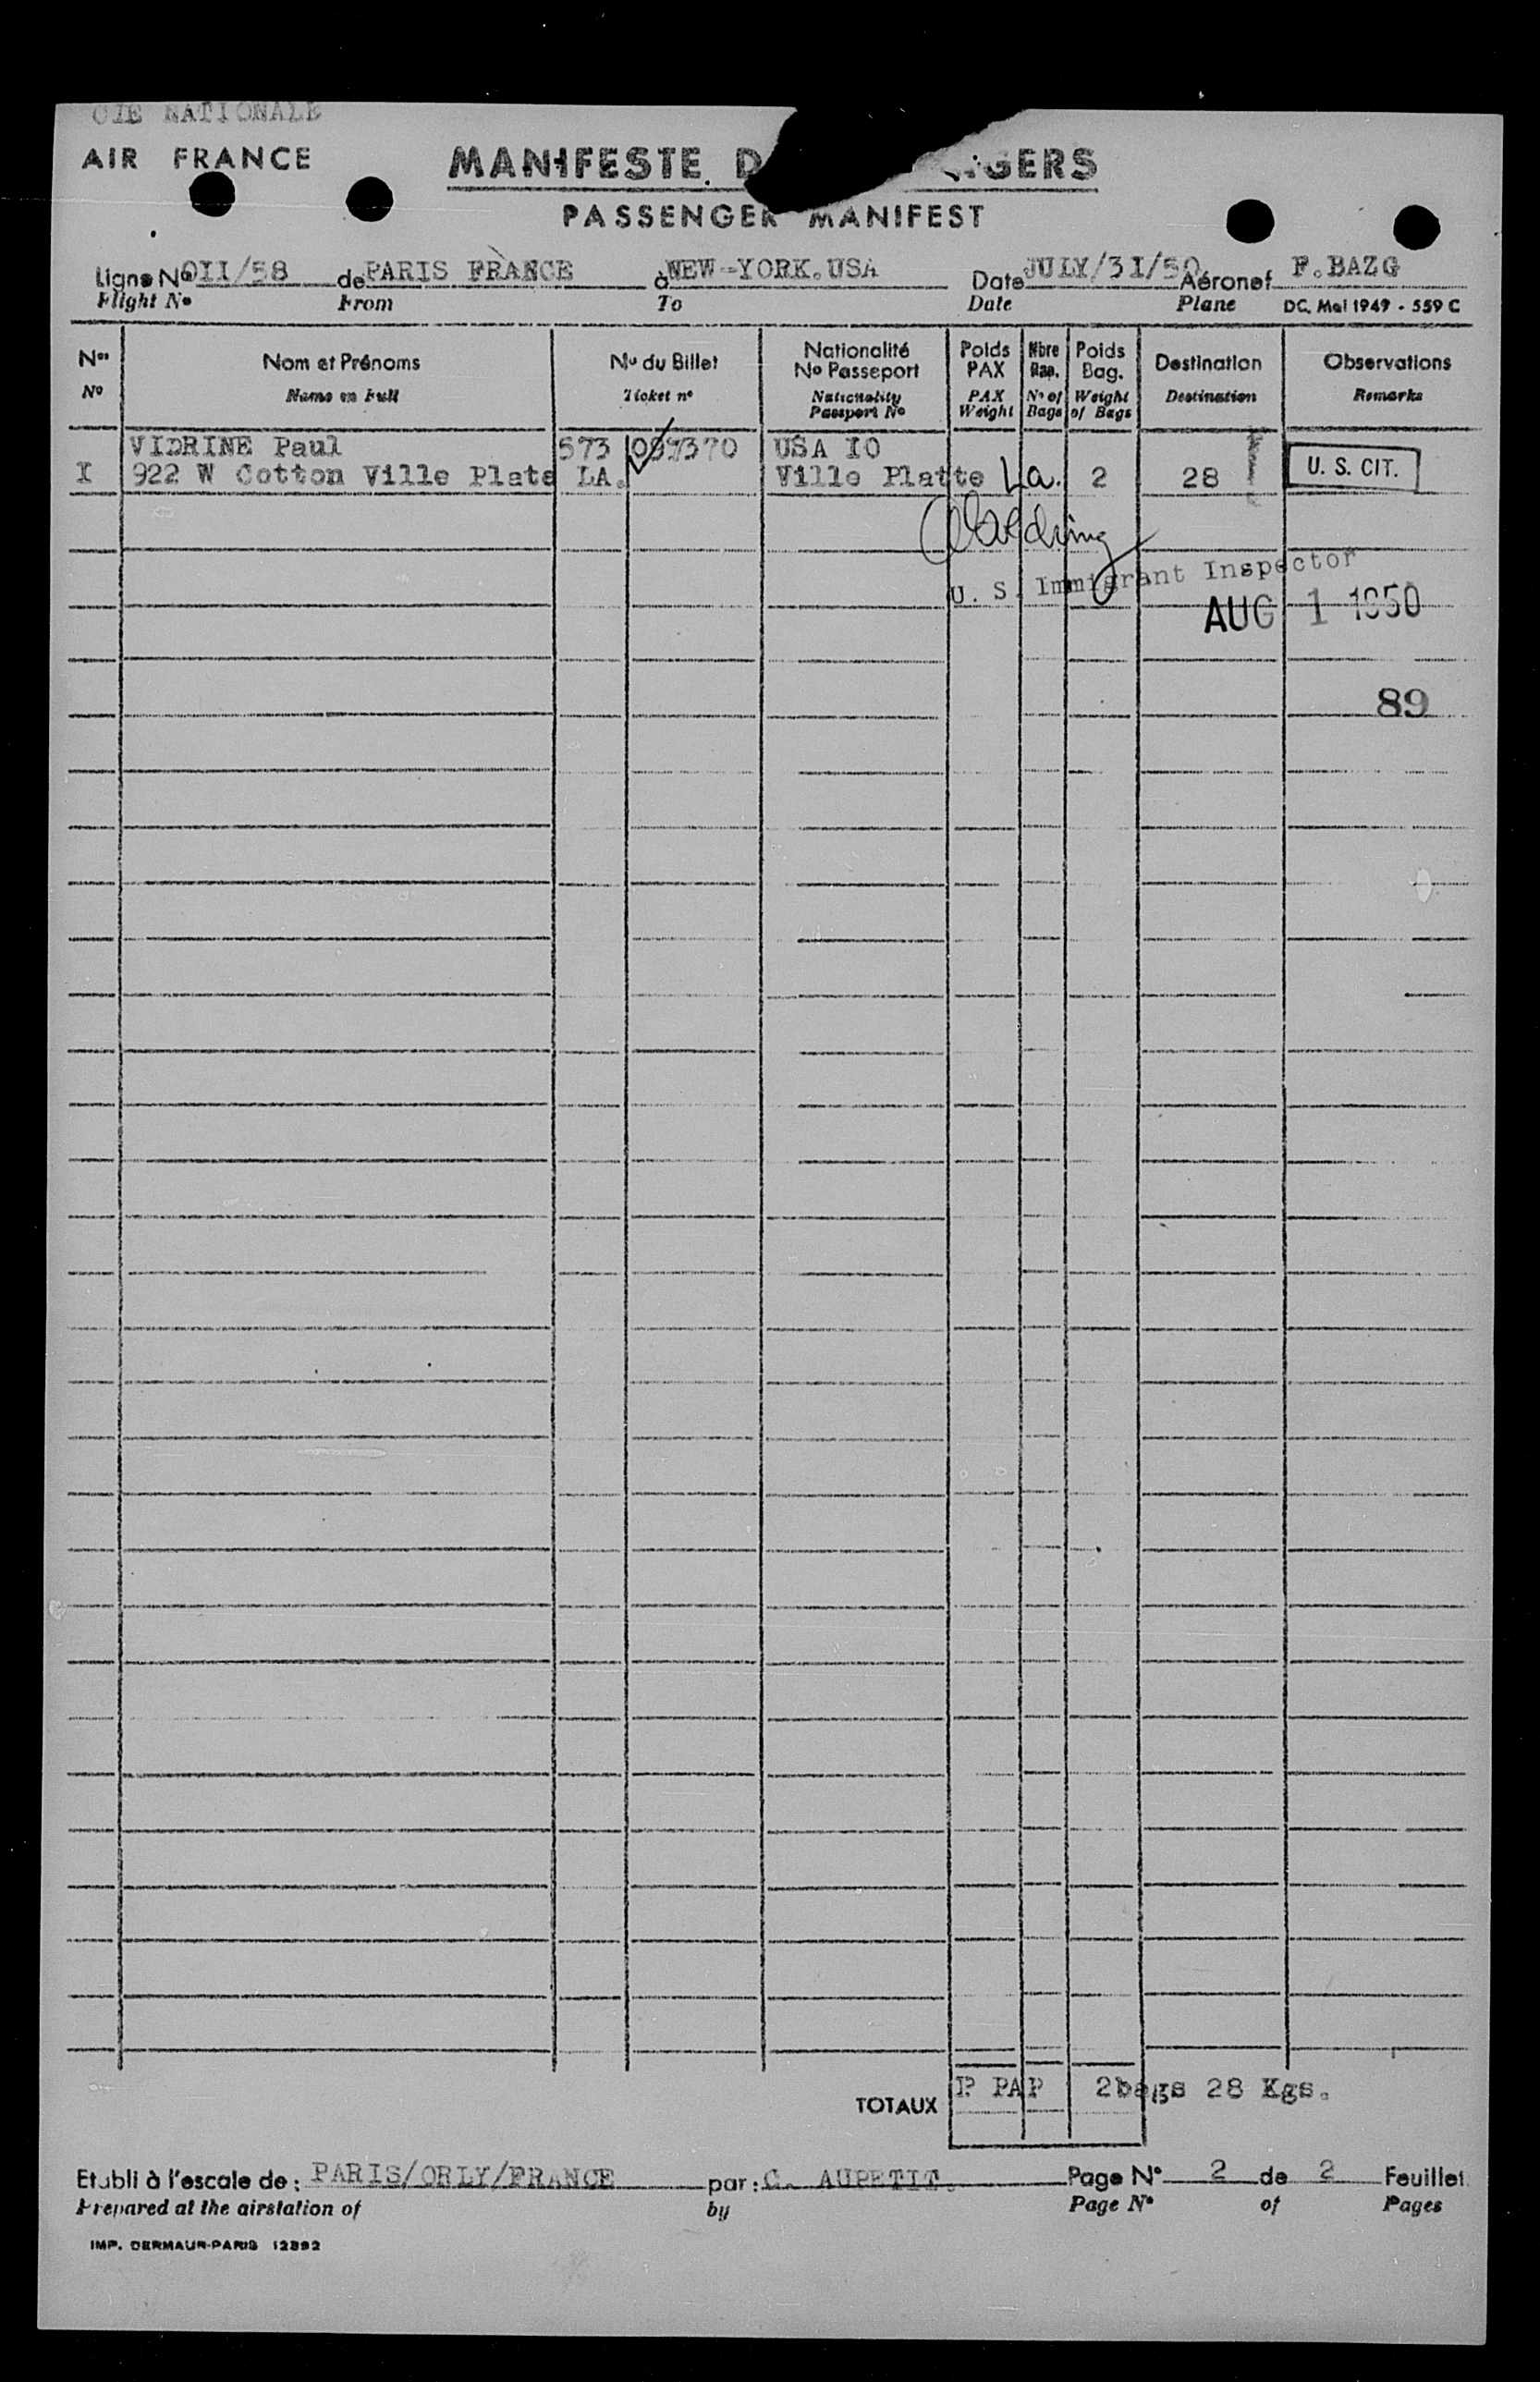 CIE NATIONALE
AIR FRANCE
MANIFESTE D GERS
PASSENGER MANIFEST
Ligne No OII/58 de PARIS FRANCE à NEW-YORK.USA Date JULY/31/50 Aéronef F.BAZG
Flight No From To Date Plane DC. Mai 1949 - 559 C
Nos Nom et Prénoms No du Billet Nationalité No Passeport Poids PAX Nbre Bag. Poids Bag. Destination Observations
No Name in Full Ticket no Nationality Passport No PAX Weight No of Bags Weight of Bags Destination Remarks
VIDRINE Paul 573 USA IO
I 922 W Cotton Ville Plate LA. Ville Platte La. 2 28 U. S. CIT.
U. S. Immigrant Inspector
AUG 1 1950
89
TOTAUX P PAP 2bags 28 Kgs.
Etabli à l'escale de: PARIS/ORLY/FRANCE par: C. AUPETIT. Page No 2 de 2 Feuillet
Prepared at the airstation of by Page No of Pages
IMP. DERMAUR-PARIS 12892